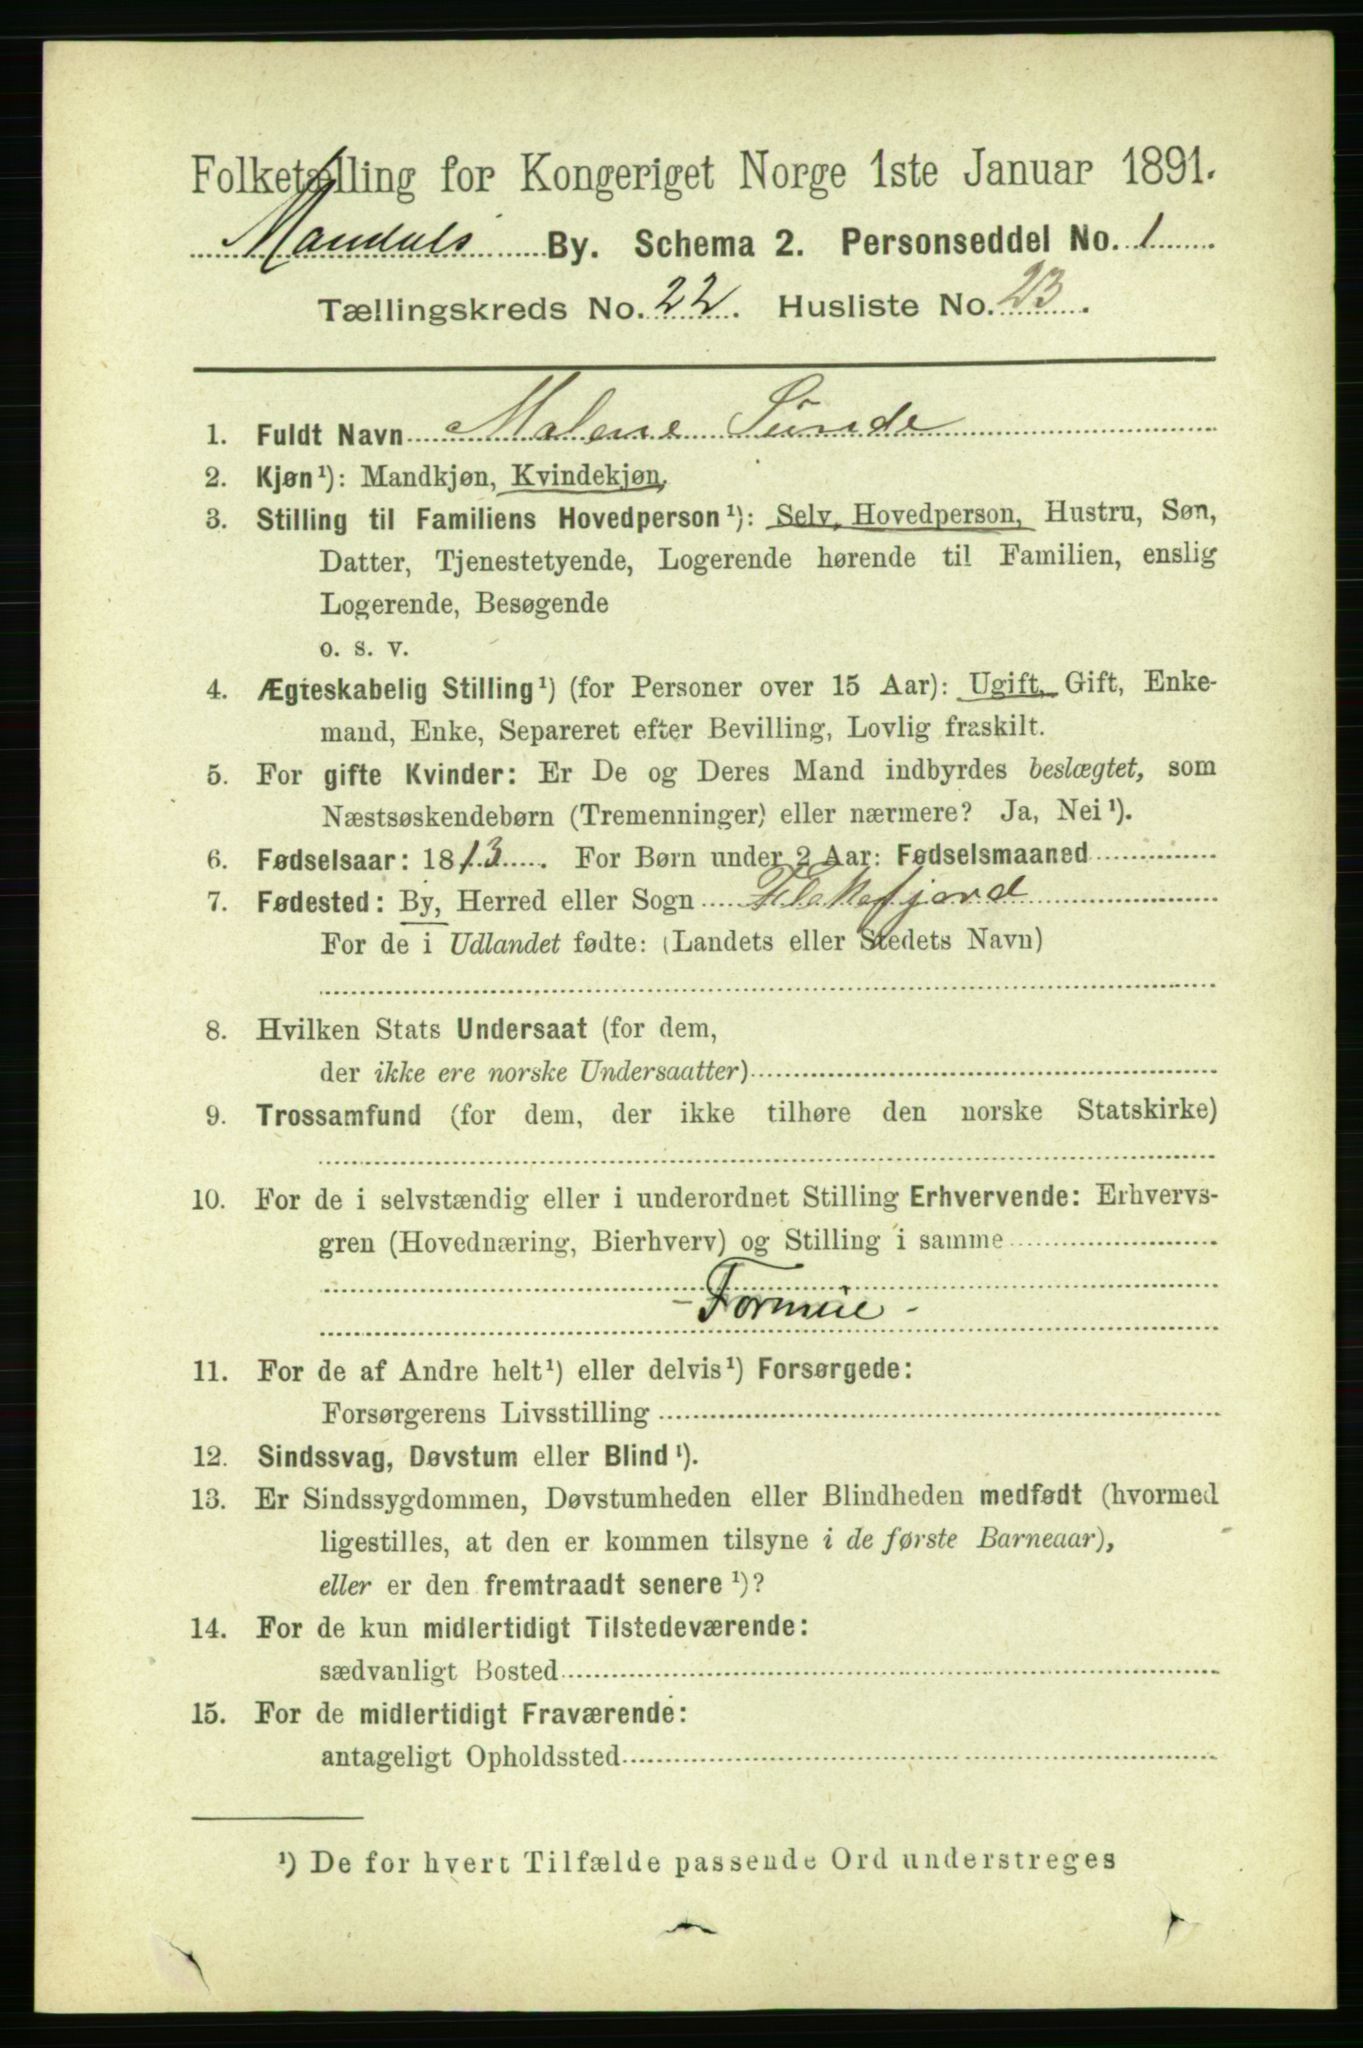 Folketælling for Kongeriget Norge 1ste Januar 1891.
Mandals By. Schema 2. Personseddel No. 1
Tællingskreds No. 22. Husliste No. 23.
1. Fuldt Navn Malene Sunde
2. Kjøn¹): Mandkjøn, Kvindekjøn.
3. Stilling til Familiens Hovedperson¹): Selv Hovedperson, Hustru, Søn,
Datter, Tjenestetyende, Logerende hørende til Familien, enslig
Logerende, Besøgende
o. s. v.
4. Ægteskabelig Stilling¹) (for Personer over 15 Aar): Ugift, Gift, Enke-
mand, Enke, Separeret efter Bevilling, Lovlig fraskilt.
5. For gifte Kvinder: Er De og Deres Mand indbyrdes beslægtet, som
Næstsøskendebørn (Tremenninger) eller nærmere? Ja, Nei¹).
6. Fødselsaar: 1813. For Børn under 2 Aar: Fødselsmaaned
7. Fødested: By, Herred eller Sogn Flekkefjord
For de i Udlandet fødte: (Landets eller Stedets Navn)
8. Hvilken Stats Undersaat (for dem,
der ikke ere norske Undersaatter)
9. Trossamfund (for dem, der ikke tilhøre den norske Statskirke)
10. For de i selvstændig eller i underordnet Stilling Erhvervende: Erhvervs-
gren (Hovednæring, Bierhverv) og Stilling i samme
- Formue -
11. For de af Andre helt¹) eller delvis¹) Forsørgede:
Forsørgerens Livsstilling
12. Sindssvag, Døvstum eller Blind¹).
13. Er Sindssygdommen, Døvstumheden eller Blindheden medfødt (hvormed
ligestilles, at den er kommen tilsyne i de første Barneaar),
eller er den fremtraadt senere¹)?
14. For de kun midlertidigt Tilstedeværende:
sædvanligt Bosted
15. For de midlertidigt Fraværende:
antageligt Opholdssted
¹) De for hvert Tilfælde passende Ord understreges